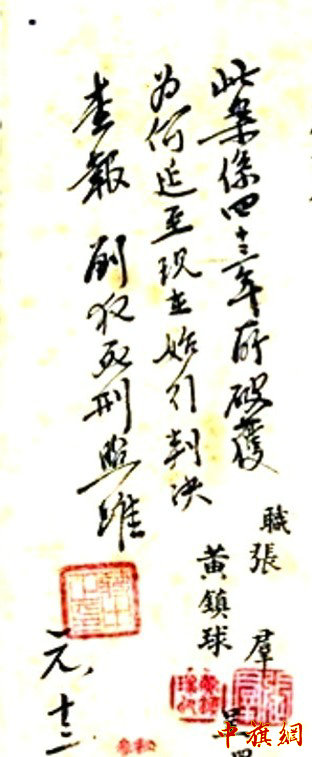 此案係四十三年所破獲
為何延至現在始行判决
查報 劉犯死刑照准
元、十二
職張 羣
黃鎮球
呈
中旗網